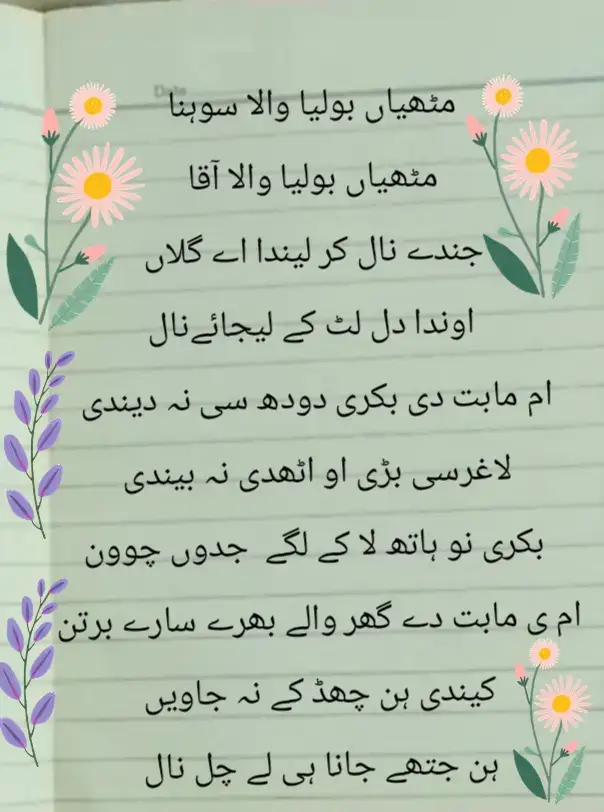 Date
مٹھیاں بولیا والا سوہنا
مٹھیاں بولیا والا آقا
جندے نال کر لیندا اے گلاں
اوندا دل لٹ کے لیجائےنال
ام مابت دی بکری دودھ سی نہ دیندی
لاغرسی بڑی او اٹھدی نہ بیندی
بکری نو ہاتھ لا کے لگے جدوں چوون
ام ی مابت دے گھر والے بھرے سارے برتن
کیندی ہن چھڈ کے نہ جاویں
ہن جتھے جانا ہی لے چل نال